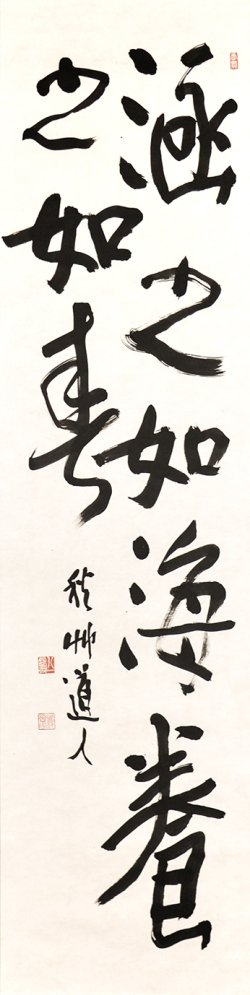 涵之如海養
之如春
秋艸道人